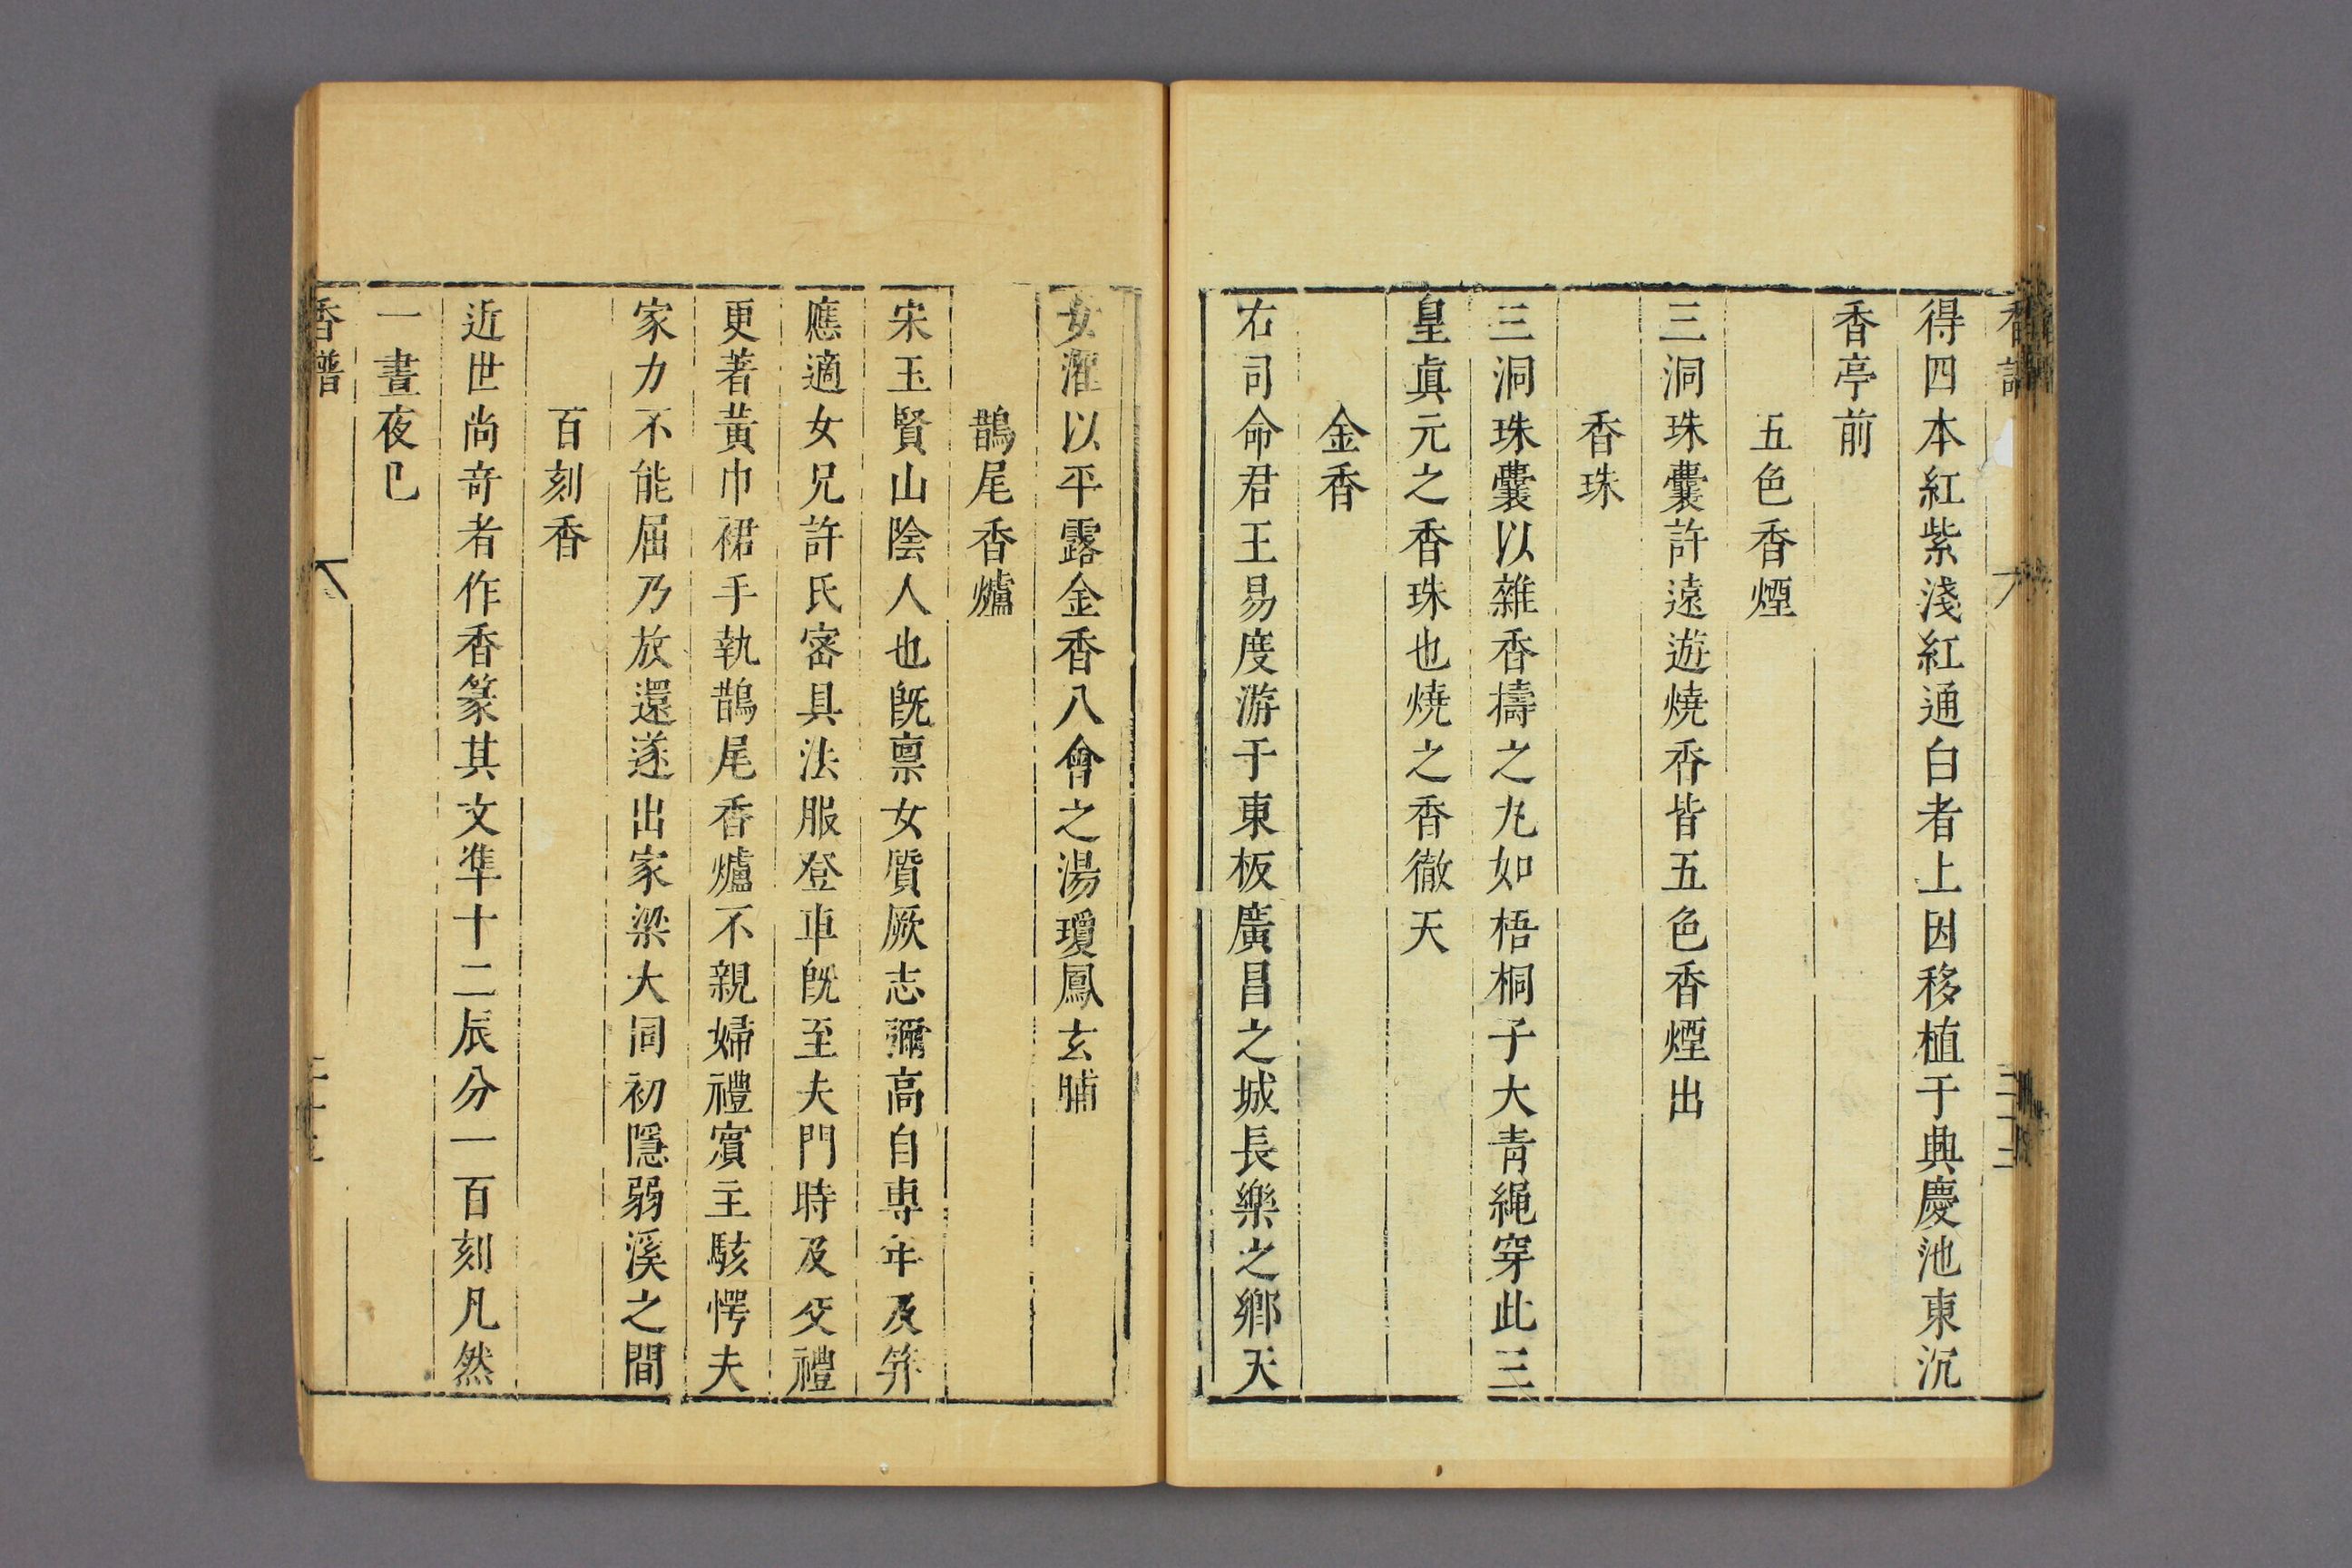 得四本紅紫淺紅通白者上因移植于典慶池東沉
香亭前
五色香煙
三洞珠囊許遠遊燒香皆五色香煙出
香珠
三洞珠囊以雜香擣之九如梧桐子大青䋲穿此三
皇眞元之香珠也燒之香徹天
金香
右司命君王易度游于東板廣昌之城長樂之鄉天
女灌以平露金香八會之湯瓊鳳玄脯
鵲尾香爐
宋玉賢山陰人也旣禀女質厥志彌高自專年及笄
應適女兄許氏密具法服登車旣至夫門時及交禮
更著黃巾裙手執鵲尾香爐不親婦禮賓主駭愕夫
家力不能屈乃放還遂出家梁大同初隱弱溪之間
百刻香
近世尚奇者作香篆其文準十二辰分一百刻凡然
一晝夜已
香譜